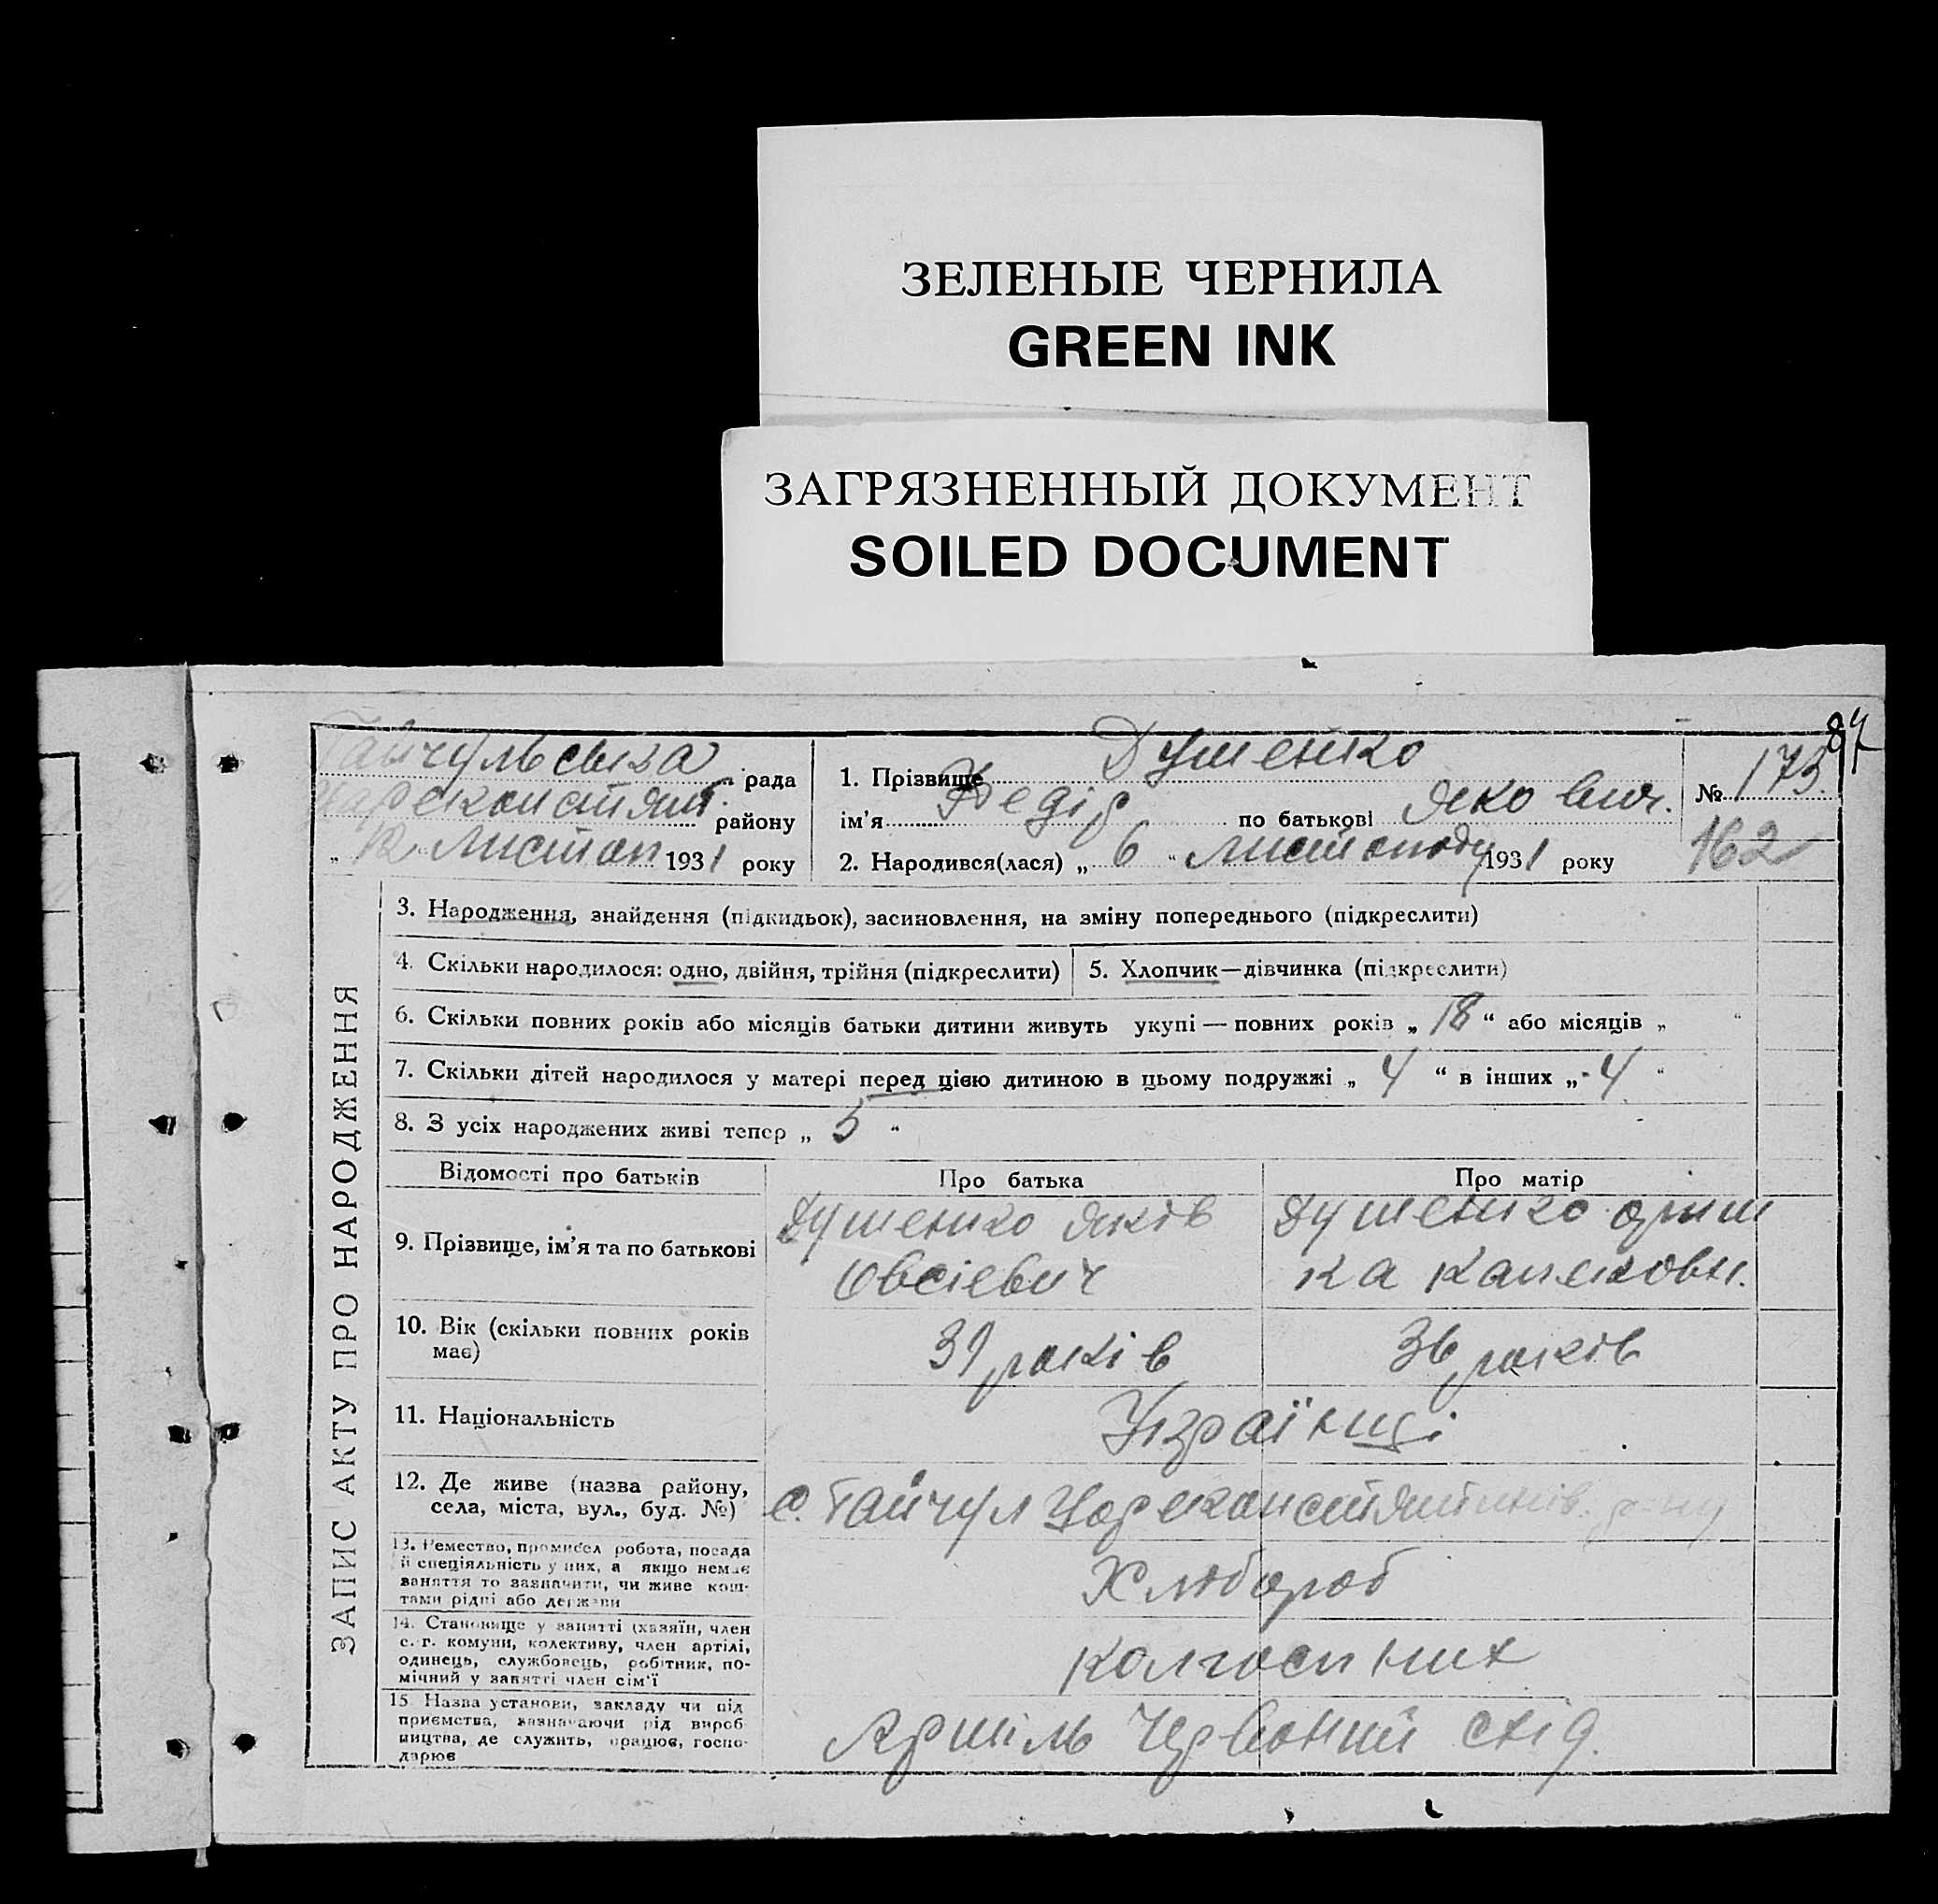 ЗЕЛЕНЫЕ ЧЕРНИЛА
GREEN INK
ЗАГРЯЗНЕННЫЙ ДОКУМЕНТ
SOILED DOCUMENT
84
Гайчульська рада
району
„12“ Листоп 1931 року
1. Прізвище Душенко
ім’я Федір по батькові Якович.
2. Народився(лася) „6“ Листопаду 1931 року
№ 173.
162
ЗАПИС АКТУ ПРО НАРОДЖЕННЯ
3. Народження, знайдення (підкидьок), засиновлення, на зміну попереднього (підкреслити)
4. Скільки народилося: одно, двійня, трійня (підкреслити)
5. Хлопчик—дівчинка (підкреслити)
6. Скільки повних років або місяців батьки дитини живуть укупі — повних років „18“ або місяців „ “
7. Скільки дітей народилося у матері перед цією дитиною в цьому подружжі „4“ в інших „-4“
8. З усіх народжених живі тепер „5“
Відомості про батьків
Про батька
Про матір
9. Прізвище, ім’я та по батькові
Душенко Яків
Овсієвич
Душенко Ориш
ка
10. Вік (скільки повних років
має)
39 років
36 років
11. Національність
Українці
12. Де живе (назва району,
села, міста, вул., буд. №)
с. Гайчул
13. Ремество, промисел робота, посада
й спеціяльність у них, а якщо немає
заняття то зазначити, чи живе кош-
тами рідні або держави
Хлібороб
14. Становище у занятті (хазяїн, член
с.-г. комуни, колективу, член артілі,
одинець, службовець, робітник, по-
мічний у занятті член сім’ї
колгоспник
15 Назва установи, закладу чи під
приємства, зазначаючи рід вироб
ництва, де служить, працює, госпо-
дарює
Артіль Червоний схід.